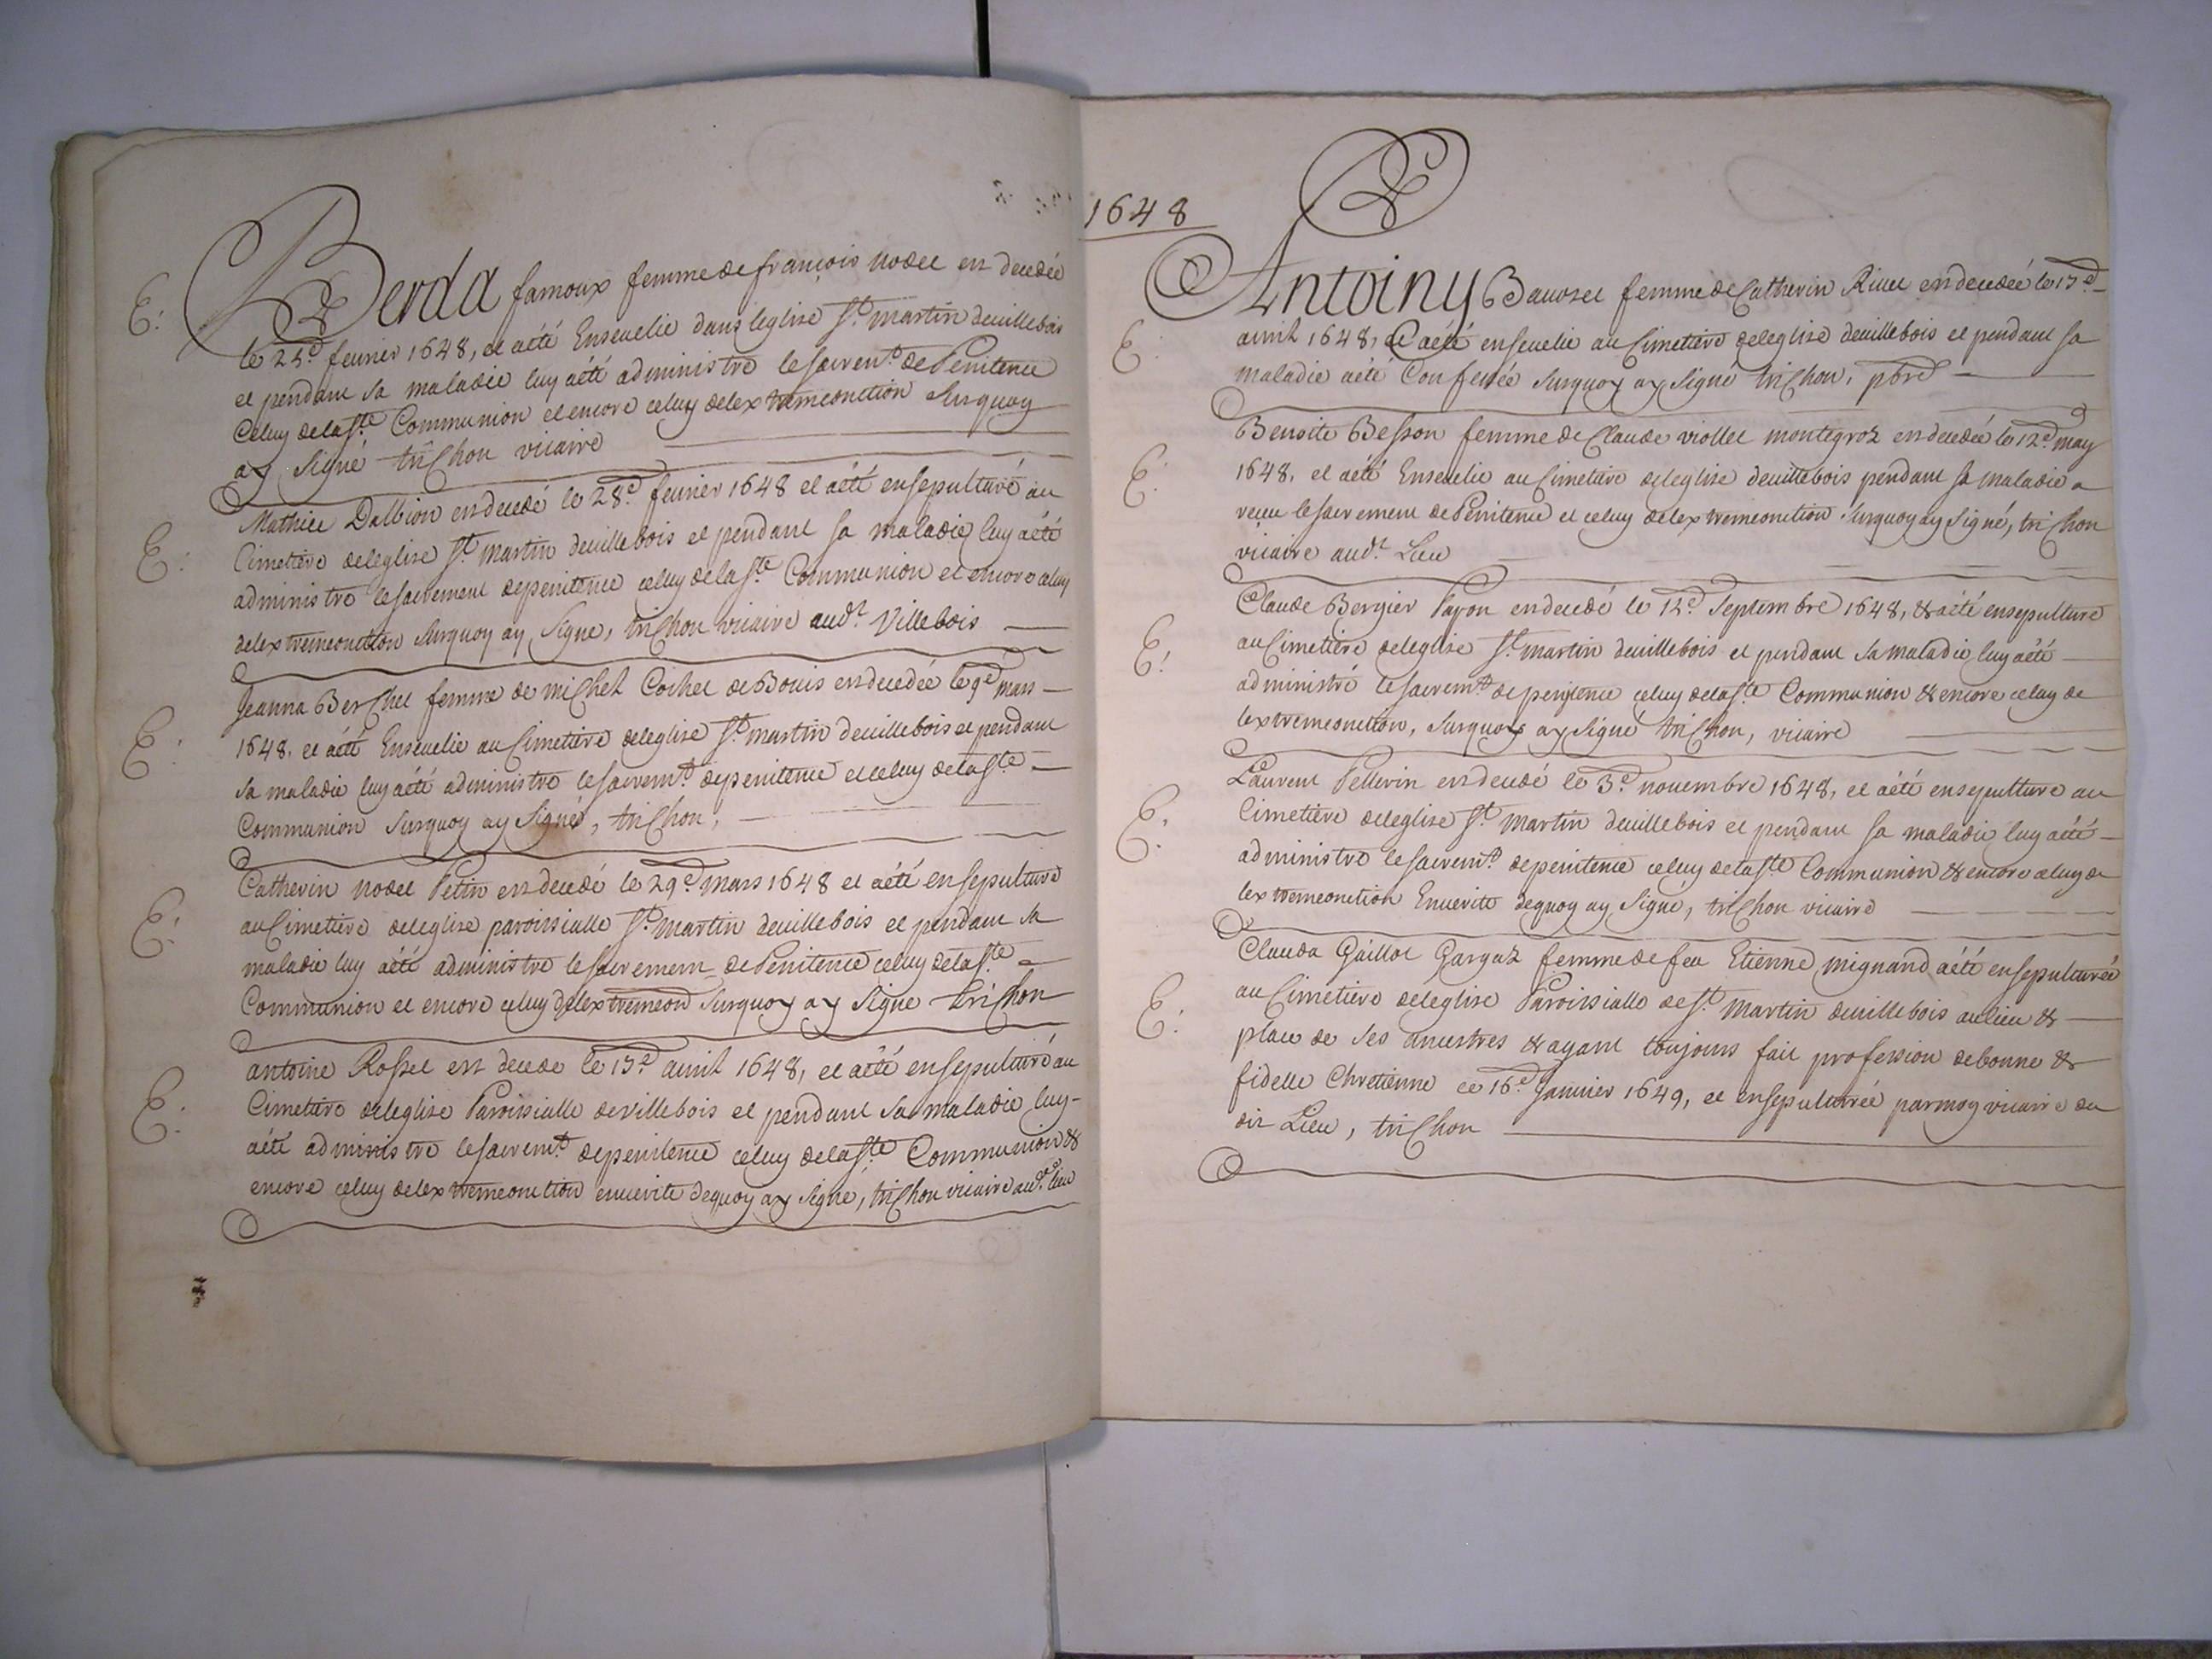 1648
E: Berda famoux femme de françois nodet est decedée
le 25.e feurier 1648, et a été Enseuelie dans leglise St. martin deuillebois
et pendant sa maladie luy a été administre le sacrem.t de Penitence
Celuy de la Ste. Communion et encore celuy delextremeonction Surquoy
ay Signé triChon vicaire
E: Mathieu Dalbion est decedé le 28.e feurier 1648 et a été ensepulturé au
Cimetiere deleglise St. martin deuillebois et pendant sa maladie luy a été
administre le sacrement depenitence celuy de la Ste. Communion et encore celuy
delextremeonction Surquoy ay Signe, triChon vicaire aud.t Villebois
E: Jeanna BerChet femme de miChel Cochet de Bouis est decedée le 9.e mars
1648. et a été Enseuelie au Cimetiere deleglise St. martin deuillebois et pendant
sa maladie luy a été administre le sacrem.t depenitence et celuy de la Ste.
Communion Surquoy ay Signé, triChon,
E: Catherin nodet Petin est decedé le 29.e mars 1648 et a été ensepulturé
au Cimetiere deleglise paroissialle St. martin deuillebois et pendant sa
maladie luy a été administre le sacrement de Penitence celuy de la Ste.
Communion et encore celuy delextremeon Surquoy ay Signe triChon
E: antoine Rosset est decede le 13.e auril 1648, et a été ensepulturé au
Cimetiere deleglise Paroissialle de villebois et pendant sa maladie luy-
a été administre le sacrem.t depenitence celuy de la Ste. Communion &
encore celuy delextremeonction enverite dequoy ay Signe, triChon vicaire aud.t lieu
Antoiny Bauozet femme de Catherin Riuet est decedée le 13.e
E: auril 1648, et a été enseuelie au Cimetiere deleglise deuillebois et pendant sa
maladie a été Confessée Surquoy ay Signé triChon, pbre
Benoite Besson femme de Claude viollet montegroz est decedée le 12.e may
E: 1648. et a été Enseuelie au Cimetiere deleglise deuillebois pendant sa maladie a
reçeu le sacrement de Penitence et celuy delextremeonction Surquoy ay Signé, triChon
vicaire aud.t Lieu
Claude Bergier Payon est decedé le 12.e Septembre 1648, & a été ensepulture
E: au Cimetiere deleglise St. martin deuillebois et pendant sa maladie luy a été
administré le sacrem.t de penitence celuy de la Ste. Communion & encore celuy de
lextremeonction, Surquoy ay Signé triChon, vicaire
Laurent Pellerin est decedé le 3.e nouembre 1648, et a été ensepulture au
E: Cimetiere deleglise St. martin deuillebois et pendant sa maladie luy a été
administre le sacrem.t depenitence celuy de la Ste. Communion & encore celuy de
lextremeonction Enuerite dequoy ay Signe, triChon vicaire
Clauda Gaillot Gargaz femme de feu Etienne mignand a été ensepulturée
E: au Cimetiere deleglise Paroissialle de St. Martin deuillebois au lieu &
place de ses ancestres & ayant toujours fait profession debonne &
fidelle Chretienne ce 16.e Januier 1649, et ensepulturée parmoy vicaire du
dit Lieu, triChon